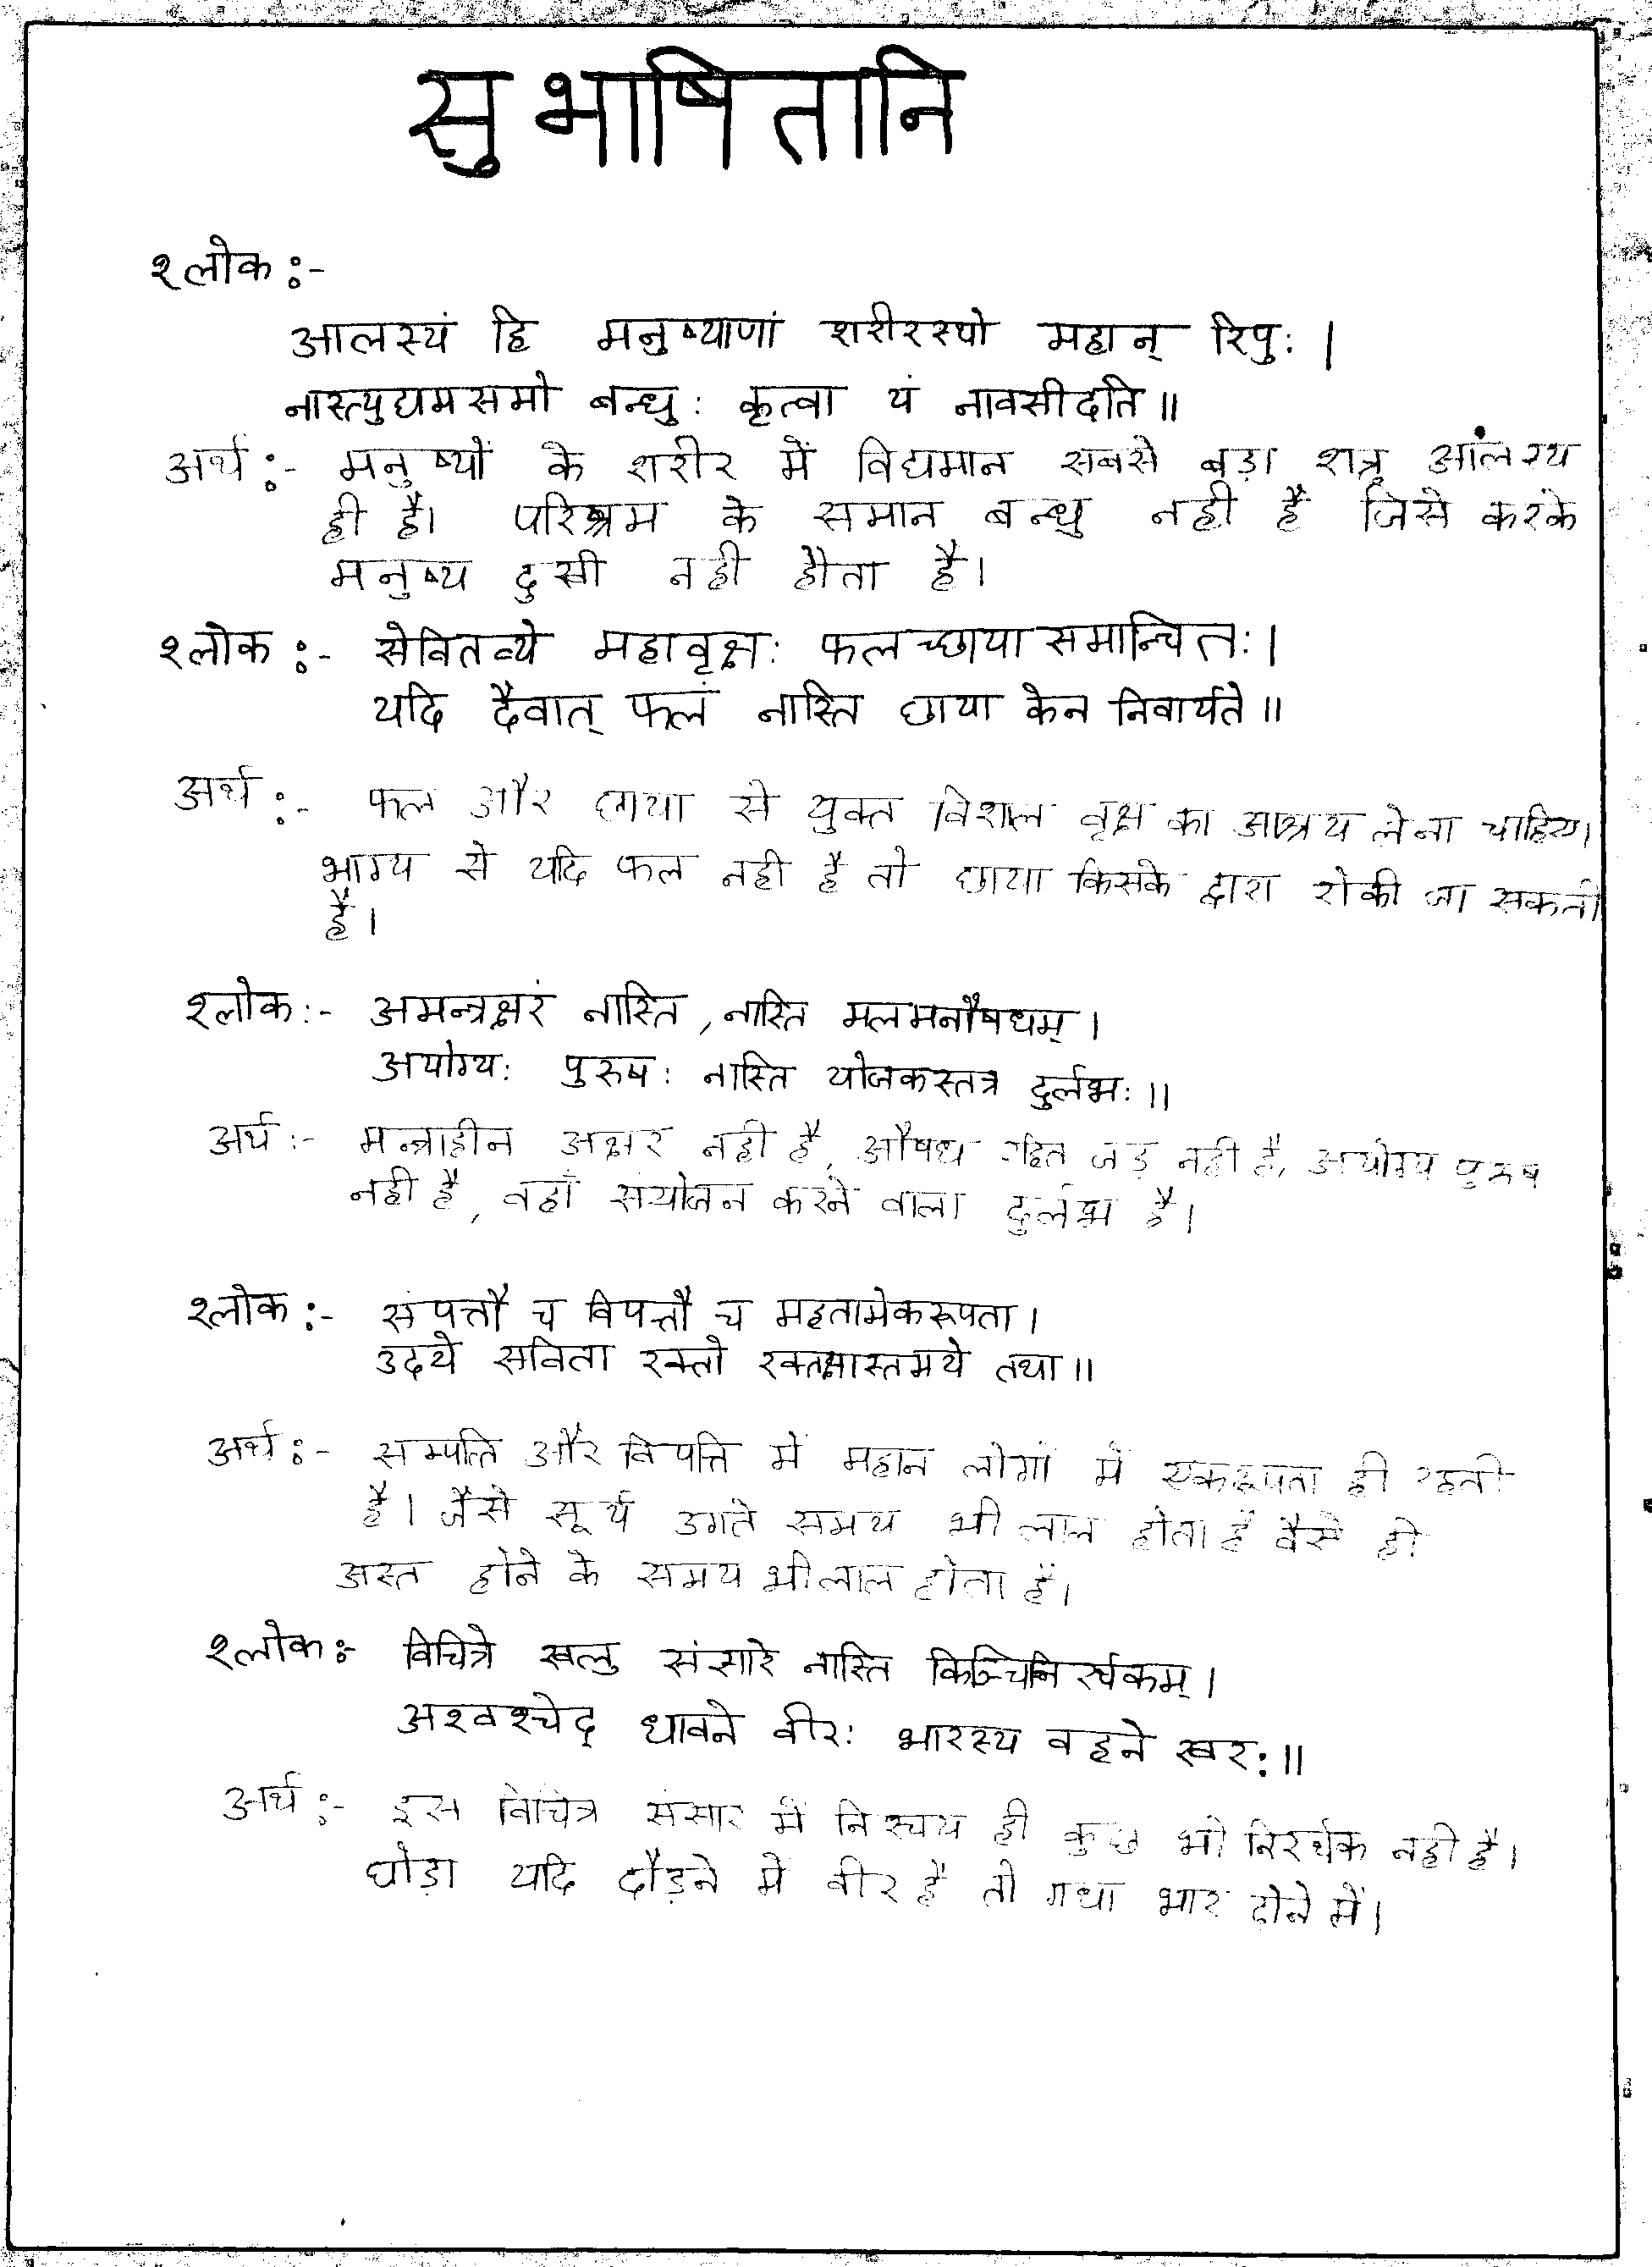 सुभाषितानि
श्लोक :-
आलस्यं हि मनुष्याणां शरीरस्पो महान् रिपुः ।
नास्त्युद्यमसमो बन्धुः कृत्वा यं नावसीदति ॥
अर्थ :- मनुष्यों के शरीर में विद्यमान सबसे बड़ा शत्रु आलस्य
ही है। परिश्रम के समान बन्धु नही है जिसे करके
मनुष्य दुसी नही होता है।
श्लोक :- सेवितव्ये महावृक्षः फलच्छाया समान्वितः ।
यदि दैवात् फलं नास्ति छाया केन निवार्यते ॥
अर्थ :- फल और छाया से युक्त विशाल वृक्ष का आश्रय लेना चाहिए।
भाग्य से यदि फल नही है तो छाया किसके द्वारा रोकी जा सकती
है।
श्लोक :- अमन्त्रक्षरं नास्ति, नास्ति मलमनौषधम् ।
अयोग्यः पुरुषः नास्ति योजकस्तत्र दुर्लभः ॥
अर्थ :- मन्त्राहीन अक्षर नही है, औषध रहित जड़ नही है, अयोग्य पुरुष
नही है, वहाँ संयोजन करने वाला दुर्लभ है।
श्लोक :- संपत्तौ च विपत्तौ च महतामेकरूपता ।
उदये सविता रक्तो रक्तश्चास्तमये तथा ॥
अर्थ :- सम्पत्ति और विपत्ति में महान लोगों में एकरूपता ही रहती
है। जैसे सूर्य उगते समय भी लाल होता है वैसे ही
अस्त होने के समय भी लाल होता है।
श्लोक :- विचित्रे खलु संसारे नास्ति किञ्चिन्निर्स्थकम् ।
अश्वश्चेद् धावने वीरः भारस्य वहने खरः ॥
अर्थ :- इस विचित्र संसार में निश्चय ही कुछ भी निरर्थक नही है।
घोड़ा यदि दौड़ने में वीर है तो गधा भार ढोने में।